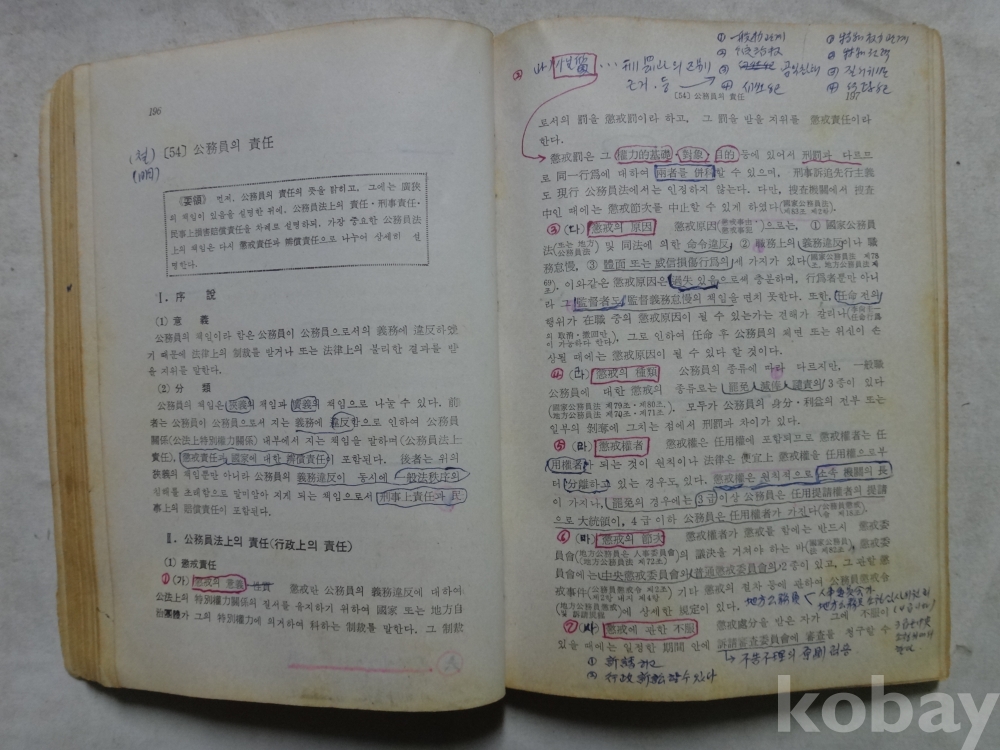 196
[54] 公務員의 責任
《要領》 먼저, 公務員의 責任의 뜻을 밝히고, 그에는 廣狹
의 책임이 있음을 설명한 뒤에, 公務員法上의 責任·刑事責任·
民事上損害賠償責任을 차례로 설명하되, 가장 중요한 公務員法
上의 책임은 다시 懲戒責任과 辨償責任으로 나누어 상세히 설
명한다.
Ⅰ. 序 說
(1) 意 義
公務員의 책임이라 함은 公務員이 公務員으로서의 義務에 違反하였
기 때문에 法律上의 制裁를 받거나 또는 法律上의 불리한 결과를 받
을 지위를 말한다.
(2) 分 類
公務員의 책임은 狹義의 책임과 廣義의 책임으로 나눌 수 있다. 前
者는 公務員이 公務員으로서 지는 義務에 違反함으로 인하여 公務員
關係(公法上特別權力關係) 내부에서 지는 책임을 말하며(公務員法上
責任), 懲戒責任과 國家에 대한 辨償責任이 포함된다. 後者는 위의
狹義의 책임뿐만 아니라 公務員의 義務違反이 동시에 一般法秩序의
침해를 초래함으로 말미암아 지게 되는 책임으로서 刑事上責任과 民
事上의 賠償責任이 포함된다.
Ⅱ. 公務員法上의 責任(行政上의 責任)
(1) 懲戒責任
①(가) 懲戒의 意義·性質 懲戒란 公務員의 義務違反에 대하여
公法上의 特別權力關係의 질서를 유지하기 위하여 國家 또는 地方自
治團體가 그의 特別權力에 의거하여 科하는 制裁를 말한다. 그 制裁
[54] 公務員의 責任
197
로서의 罰을 懲戒罰이라 하고, 그 罰을 받을 지위를 懲戒責任이라
한다.
懲戒罰은 그 權力的基礎·對象·目的 등에 있어서 刑罰과 다르므
로 同一行爲에 대하여 兩者를 倂科할 수 있으며, 刑事訴追先行主義
도 現行 公務員法에서는 인정하지 않는다. 다만, 搜査機關에서 搜査
中인 때에는 懲戒節次를 中止할 수 있게 하였다(國家公務員法 제83조 제2항).
③ (다) 懲戒의 原因 懲戒原因(懲戒事由)으로는, ① 國家公務員
法(또는 地方公務員法) 및 同法에 의한 命令違反, ② 職務上의 義務違反이나 職
務怠慢, ③ 體面 또는 威信損傷行爲의 세 가지가 있다(國家公務員法 제78조, 地方公務員法 제69
조). 이와같은 懲戒原因은 過失 있음으로써 충분하며, 行爲者뿐만 아니
라 그 監督者도 監督義務怠慢의 책임을 면치 못한다. 또한, 任命 전의
행위가 在職 중의 懲戒原因이 될 수 있는가는 견해가 갈리나
가능하다 한다), 그로 인하여 任命 후 公務員의 체면 또는 위신이 손
상될 때에는 懲戒原因이 될 수 있다 할 것이다.
④ (라) 懲戒의 種類 公務員의 종류에 따라 다르지만, 一般職
公務員에 대한 懲戒의 종류로는 罷免·減俸·譴責의 3종이 있다
(國家公務員法 제79조·제80조, 地方公務員法 제70조·제71조). 모두가 公務員의 身分·利益의 전부 또는
일부의 剝奪에 그치는 점에서 刑罰과 차이가 있다.
⑤ (마) 懲戒權者 懲戒權은 任用權에 포함되므로 懲戒權者는 任
用權者가 되는 것이 원칙이나 法律은 便宜上 懲戒權을 任用權으로부
터 分離하고 있는 경우도 있다. 懲戒權은 원칙적으로 소속 機關의 長
이 가지나, 罷免의 경우에는 3급이상 公務員은 任用提請權者의 提請
으로 大統領이, 4급 이하 公務員은 任用權者가 가진다
⑥ (바) 懲戒의 節次 懲戒權者가 懲戒를 함에는 반드시 懲戒委
員會(地方公務員은 人事委員會)의 議決을 거쳐야 하는 바(國家公務員法 제82조), 懲戒委
員會에는 中央懲戒委員會와 普通懲戒委員會의 2종이 있고, 그 관할
懲戒事件 기타 懲戒의 절차 등에 관하여 公務員懲戒令
에 상세한 規定이 있다.
⑦ (사) 懲戒에 관한 不服 懲戒處分을 받은 자가 그에 不服이
있을 때에는 일정한 期間 안에 訴請審査委員會에 審査를 청구할 수
→ 不告不理의 原則 적용
kobay